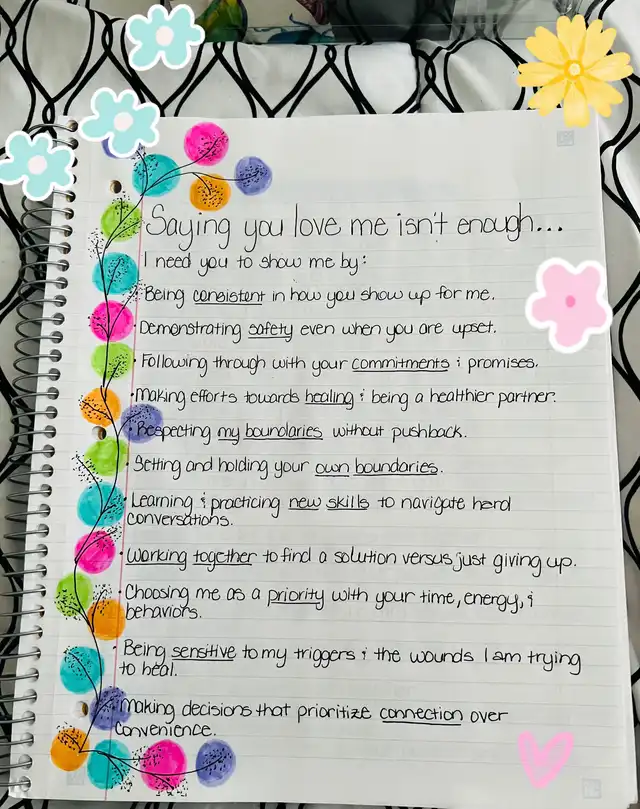 Saying you love me isn't enough...
I need you to show me by:
• Being consistent in how you show up for me.
• Demonstrating safety even when you are upset.
• Following through with your commitments & promises.
• Making efforts towards healing & being a healthier partner.
• Respecting my boundaries without pushback.
• Setting and holding your own boundaries.
• Learning & practicing new skills to navigate hard
conversations.
• Working together to find a solution versus just giving up.
• Choosing me as a priority with your time, energy, &
behaviors.
• Being sensitive to my triggers & the wounds I am trying
to heal.
• Making decisions that prioritize connection over
convenience.